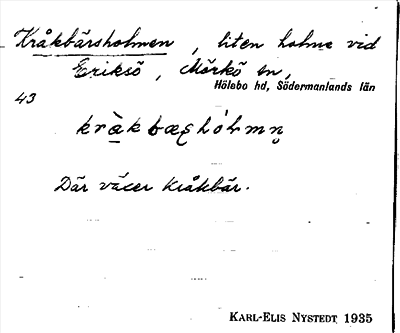 Kråkbärsholmen, liten holme vid
Eriksö, Mörkö sn,
Hölebo hd, Södermanlands län
43
Där växer kråkbär.
KARL-ELIS NYSTEDT 1935